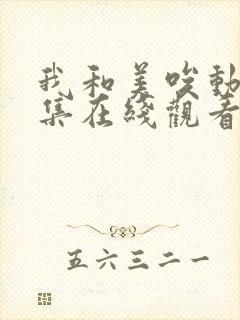 我和美咲動
集在綫觀看
五六三二一